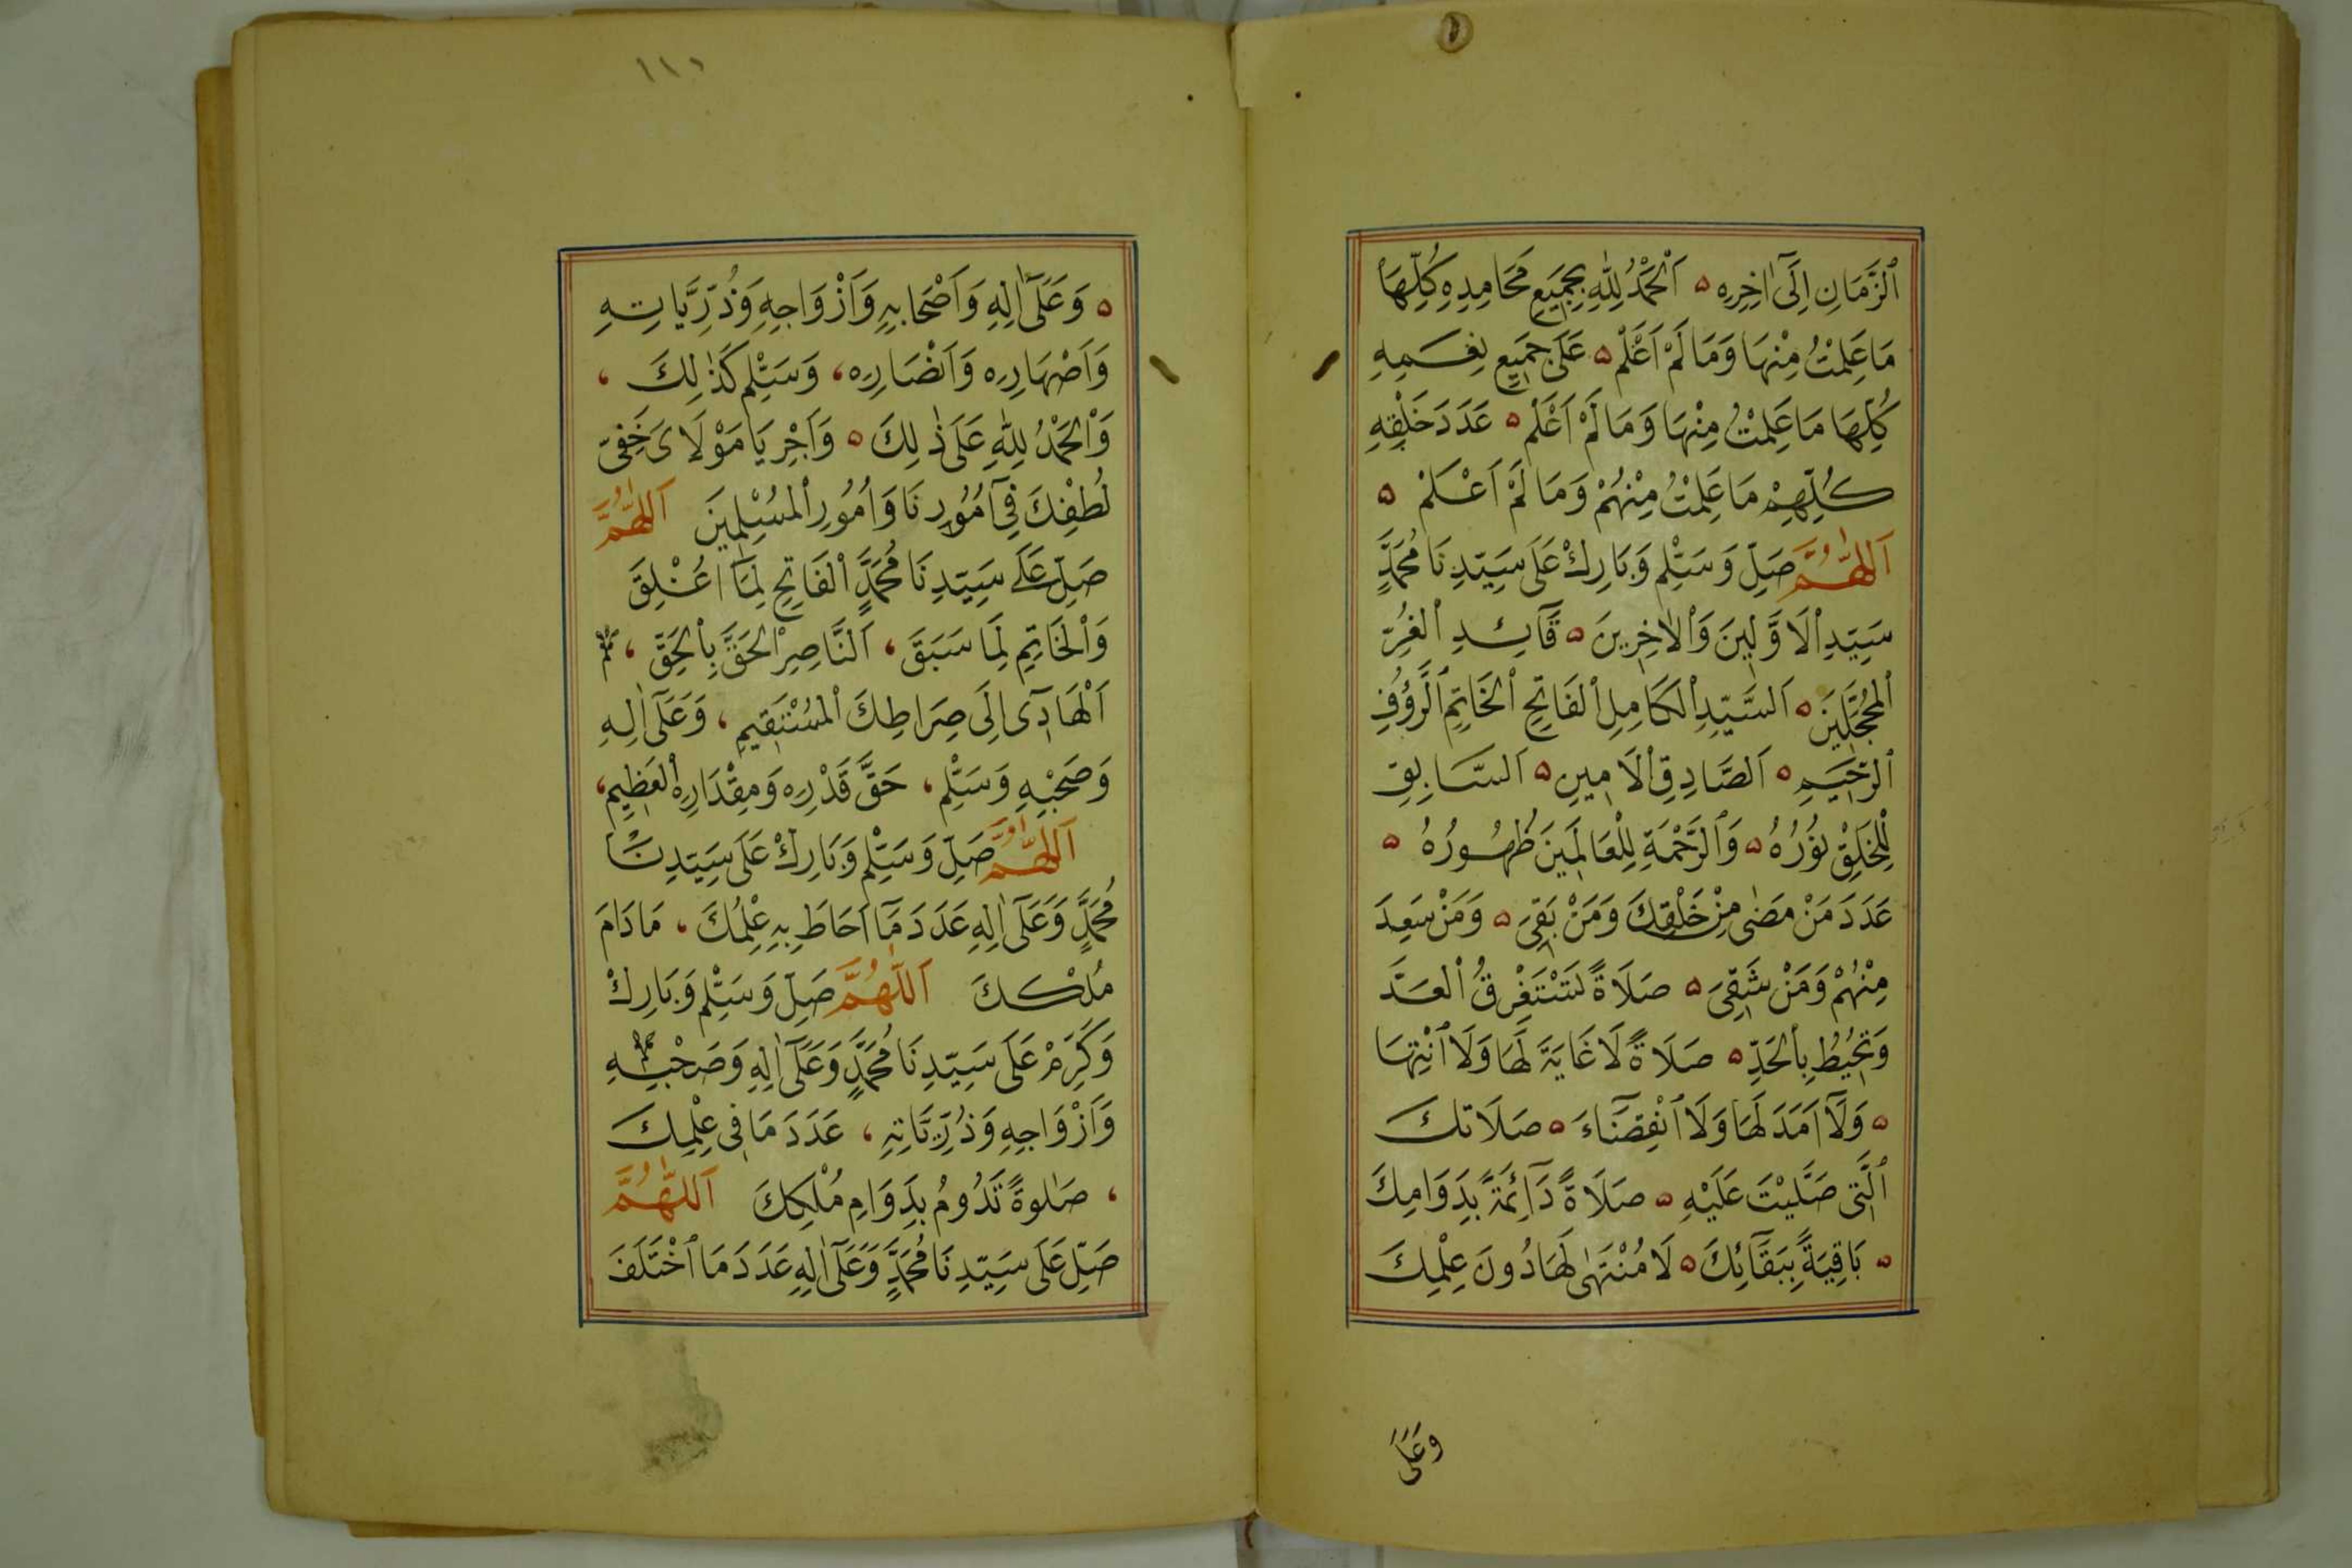 ٱلزَّمَانِ اِلَىٰٓ اٰخِرِهِ ۵ اَلْحَمْدُ لِلّٰهِ بِجَمِيعِ مَحَامِدِهِ كُلِّهَا
مَا عَلِمْتُ مِنْهَا وَمَا لَمْ اَعْلَمْ ۵ عَلَى جَمِيعِ نِعَمِهِ
كُلِّهَا مَا عَلِمْتُ مِنْهَا وَمَا لَمْ اَعْلَمْ ۵ عَدَدَ خَلْقِهِ
كُلِّهِمْ مَا عَلِمْتُ مِنْهُمْ وَمَا لَمْ اَعْلَمْ ۵
اَللّٰهُمَّ صَلِّ وَسَلِّمْ وَبَارِكْ عَلَى سَيِّدِنَا مُحَمَّدٍ
سَيِّدِ ٱلْاَوَّلِينَ وَٱلْاٰخِرِينَ ۵ قَآئِدِ ٱلْغُرِّ
ٱلْمُحَجَّلِينَ ۵ اَلسَّيِّدِ ٱلْكَامِلِ ٱلْفَاتِحِ ٱلْخَاتِمِ ٱلرَّؤُفِ
ٱلرَّحِيمِ ۵ اَلصَّادِقِ ٱلْاَمِينِ ۵ اَلسَّابِقِ
لِلْخَلْقِ نُوْرُهُ ۵ وَٱلرَّحْمَةِ لِلْعَالَمِينَ ظُهُورُهُ ۵
عَدَدَ مَنْ مَضٰى مِنْ خَلْقِكَ وَمَنْ بَقِىَ ۵ وَمَنْ سَعِدَ
مِنْهُمْ وَمَنْ شَقِىَ ۵ صَلَاةً تَسْتَغْرِقُ ٱلْعَدَّ
وَتُحِيطُ بِٱلْحَدِّ ۵ صَلَاةً لَا غَايَةَ لَهَا وَلَا ٱنْتِهَا
۵ وَلَآ اَمَدَ لَهَا وَلَا ٱنْقِضَآءَ ۵ صَلَاتَكَ
ٱلَّتِى صَلَّيْتَ عَلَيْهِ ۵ صَلَاةً دَآئِمَةً بِدَوَامِكَ
۵ بَاقِيَةً بِبَقَآئِكَ ۵ لَا مُنْتَهٰى لَهَا دُونَ عِلْمِكَ
وَعَلَى
١١١
۵ وَعَلَىٰٓ اٰلِهِ وَاَصْحَابِهِ وَاَزْوَاجِهِ وَذُرِّيَّاتِهِ
وَاَصْهَارِهِ وَاَنْصَارِهِ، وَسَلِّمْ كَذٰلِكَ ،
وَٱلْحَمْدُ لِلّٰهِ عَلَى ذٰلِكَ ۵ وَاَجْرِ يَا مَوْلَاىَ خَفِىَّ
لُطْفِكَ فِىٓ اُمُوْرِنَا وَاُمُورِ ٱلْمُسْلِمِينَ اَللّٰهُمَّ
صَلِّ عَلَى سَيِّدِنَا مُحَمَّدٍ ٱلْفَاتِحِ لِمَآ اُغْلِقَ
وَٱلْخَاتِمِ لِمَا سَبَقَ، اَلنَّاصِرِ ٱلْحَقَّ بِٱلْحَقِّ ،
اَلْهَادِىٓ اِلَى صِرَاطِكَ ٱلْمُسْتَقِيمِ ، وَعَلَىٰٓ اٰلِهِ
وَصَحْبِهِ وَسَلِّمْ، حَقَّ قَدْرِهِ وَمِقْدَارِهِ ٱلْعَظِيمِ،
اَللّٰهُمَّ صَلِّ وَسَلِّمْ وَبَارِكْ عَلَى سَيِّدِنَا
مُحَمَّدٍ وَعَلَىٰٓ اٰلِهِ عَدَدَ مَآ اَحَاطَ بِهِ عِلْمُكَ ، مَا دَامَ
مُلْكُكَ اَللّٰهُمَّ صَلِّ وَسَلِّمْ وَبَارِكْ
وَكَرِّمْ عَلَى سَيِّدِنَا مُحَمَّدٍ وَعَلَىٰٓ اٰلِهِ وَصَحْبِهِ
وَاَزْوَاجِهِ وَذُرِّيَّاتِهِ ، عَدَدَ مَا فِى عِلْمِكَ
، صَلٰوةً تَدُومُ بِدَوَامِ مُلْكِكَ اَللّٰهُمَّ
صَلِّ عَلَى سَيِّدِنَا مُحَمَّدٍ وَعَلَىٰٓ اٰلِهِ عَدَدَ مَا ٱخْتَلَفَ